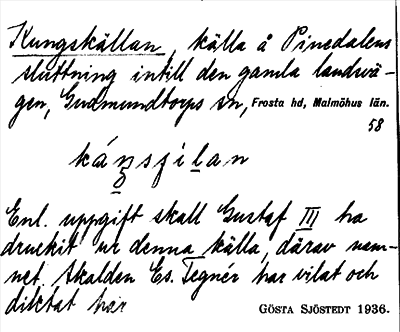 Kungskällan, källa å Pinedalens
sluttning intill den gamla landsvä-
gen, Gudmundtorps sn, Frosta hd, Malmöhus län.
58
káŋsɟilan
Enl. uppgift skall Gustaf III ha
druckit ur denna källa, därav nam-
net. Skalden Es. Tegnér har vilat och
diktat här
GÖSTA SJÖSTEDT 1936.